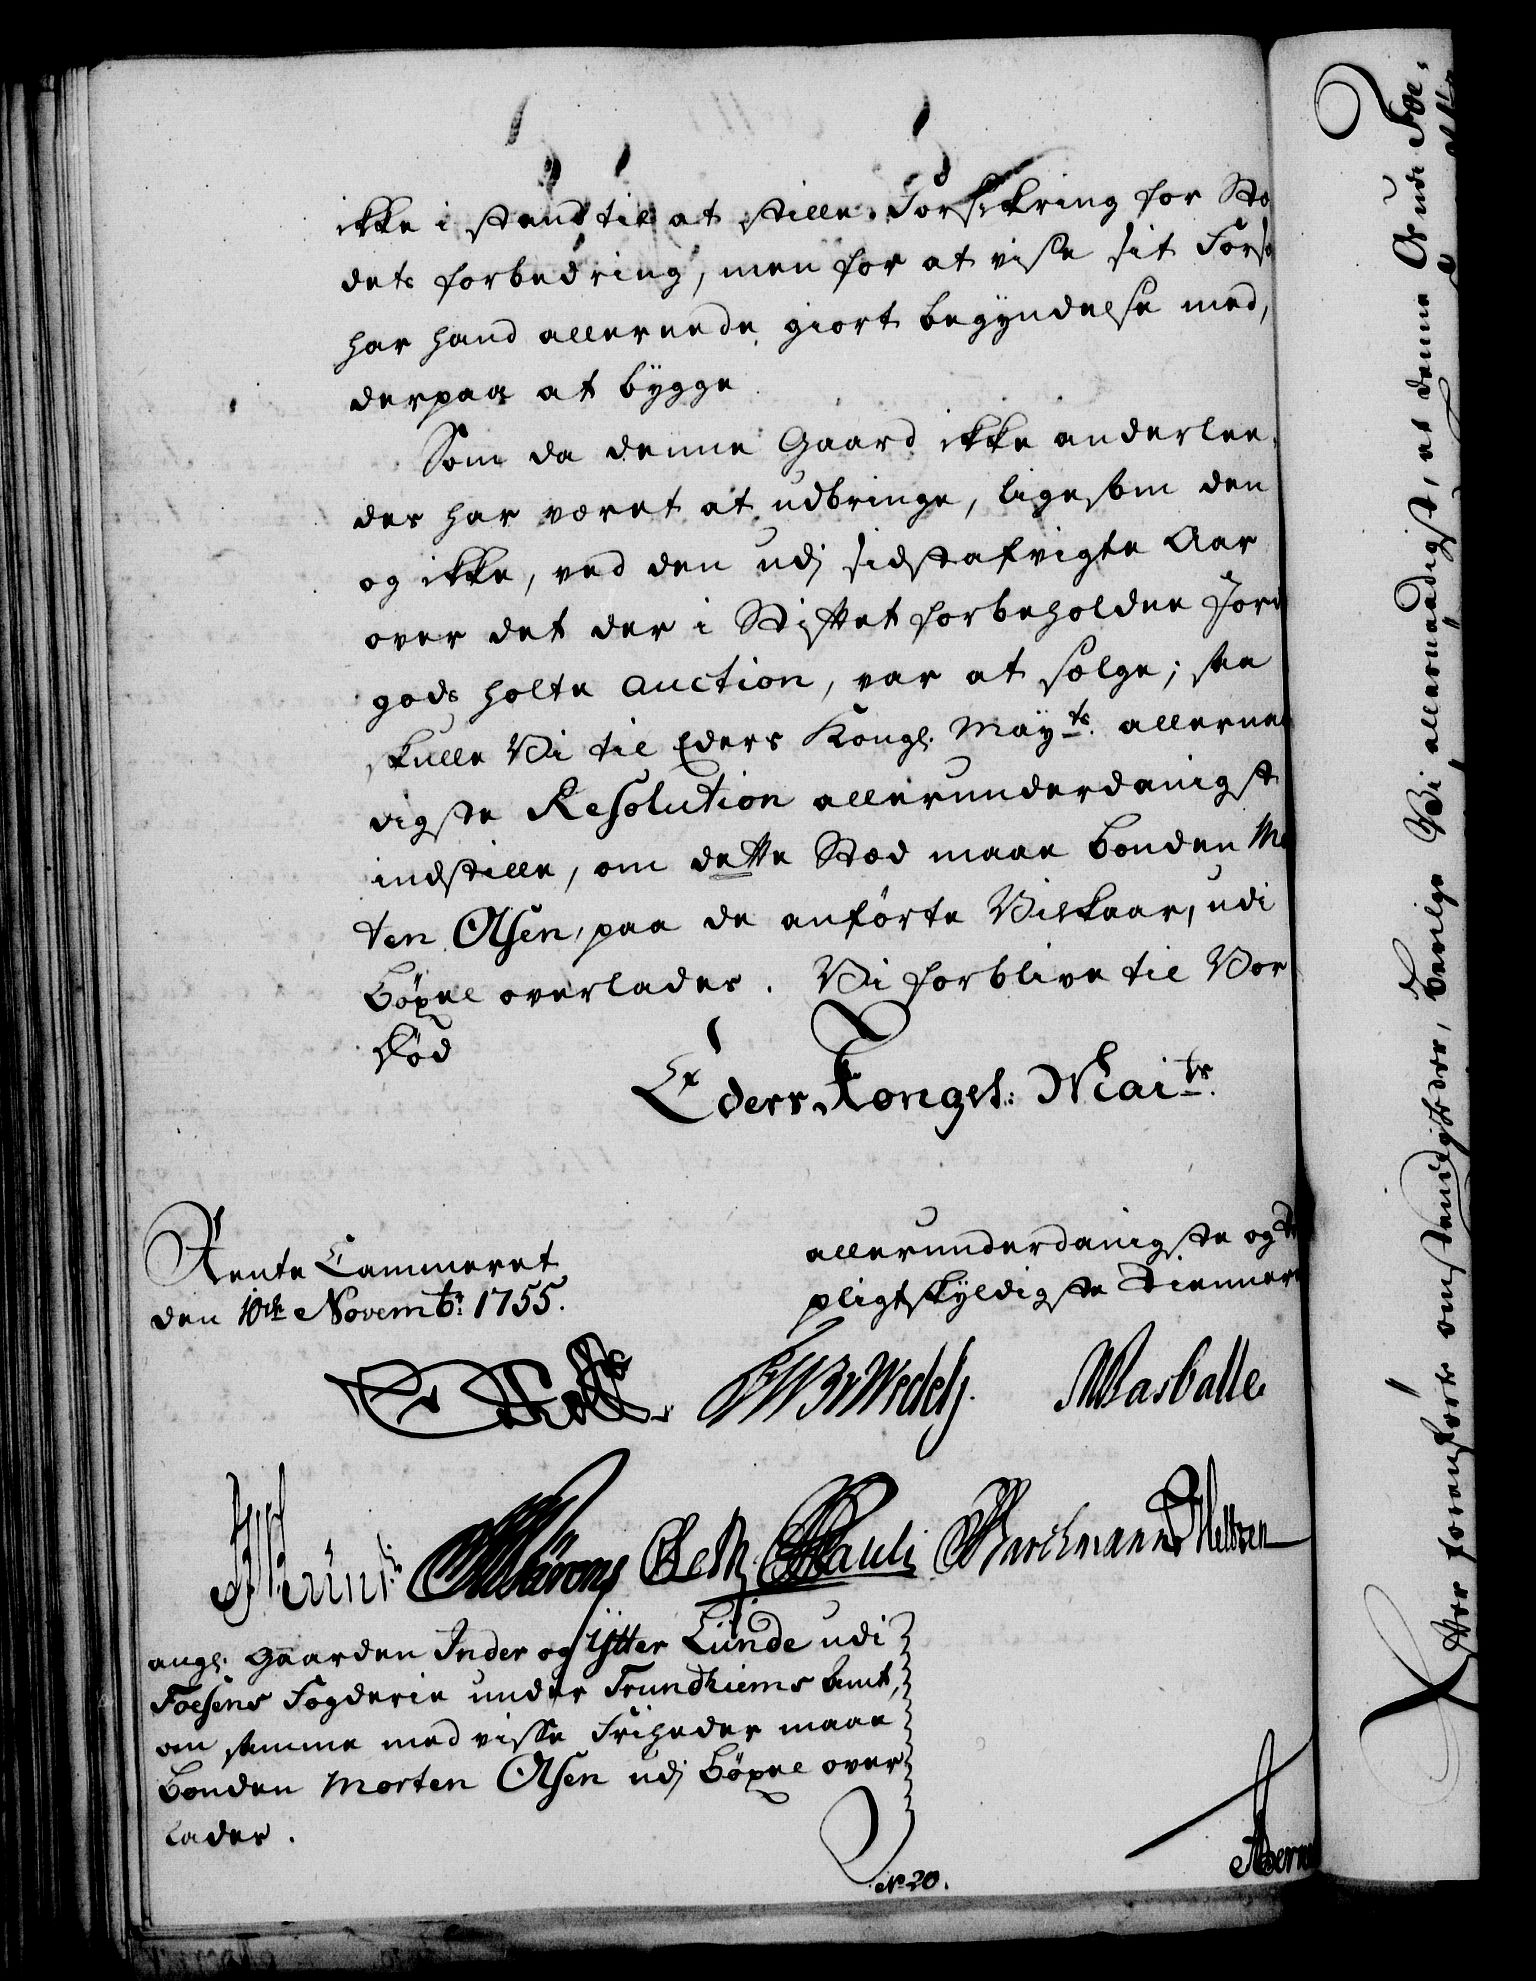 ikke i stand til at stille Forsikring for Stæ
dets forbedring, men for at vise sit Forsæ
har hand allereede giort begyndelse med,
derpaa at bygge
Som da denne Gaard ikke anderlee,
des har været at udbringe, ligesom den
og ikke, ved den udj sidstafvigte Aar
over det der i Stiftet forbeholdne Jord
gods holte Auction, var at sælge; saa
skulle Vi til Eders Kongl. Mayts. allernaa
digste Resolution allerunderdanigst
indstille, om dette Stæd maae Bonden Mo
ten Olsen, paa de anførte Vilkaar, udi
Böxel overlades. Vi forblive til Vor
Död
Eders Kongel: Maits.
Rente Cammeret
den 10de Novembr: 1755.
allerunderdanigste og
pligtskyldigste Tiennere
Wedelß. Wasballe
Pauli Barchmann
angl. Gaarden Inder og Ytter Lunde udi
Foesens Fogderie under Trundhiems Amt,
om samme med visse Friheder maae
Bonden Morten Olsen udj Böxel over
lades.
No 20.
Efter foranførte omstendigheder, bevilge Vi allernaadigst, at denne